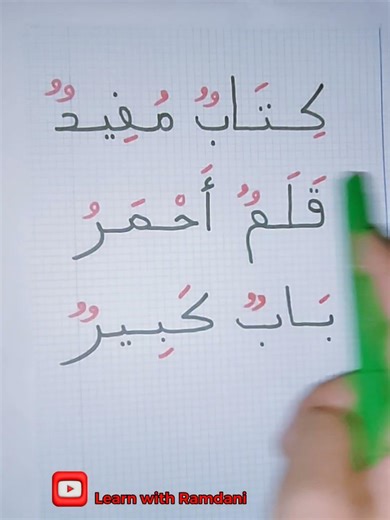 كِتَابٌ مُفِيدٌ
قَلَمٌ أَحْمَرُ
بَابٌ كَبِيرٌ
Learn with Ramdani